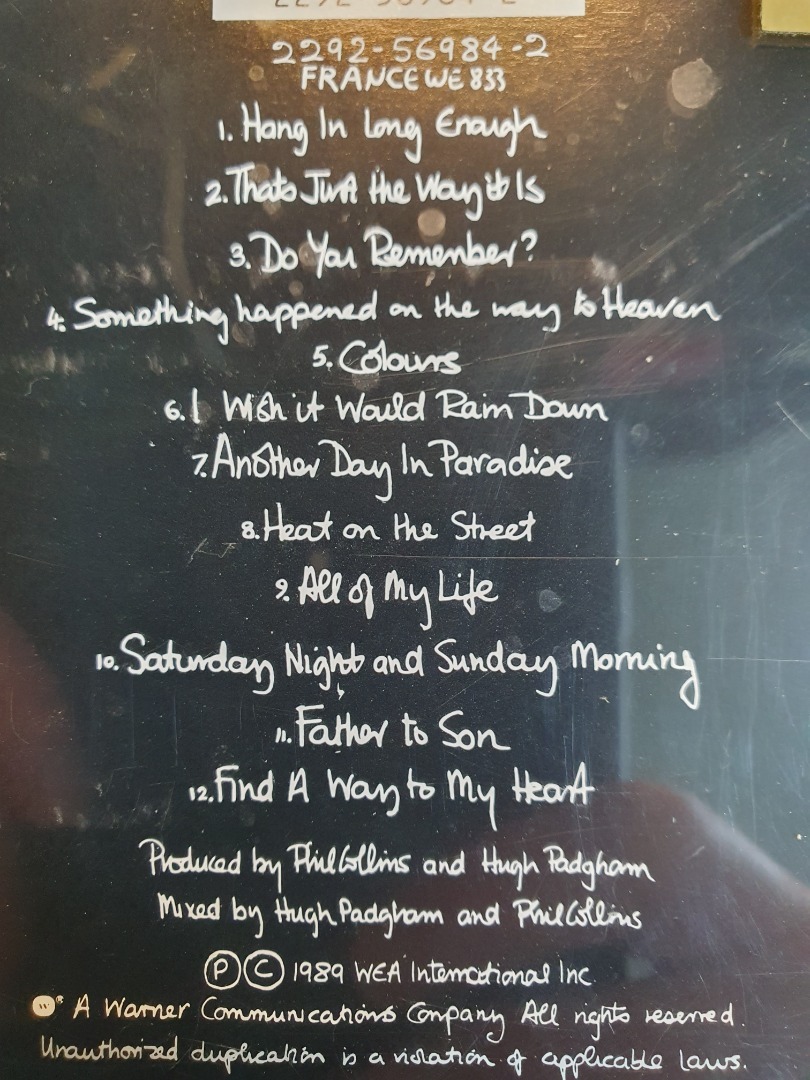 2292-56984-2
FRANCE WE 833
1. Hang In Long Enough
2. Thats Just the Way it Is
3. Do You Remember?
4. Something happened on the way to Heaven
5. Colours
6. I Wish it Would Rain Down
7. Another Day In Paradise
8. Heat on the Street
9. All of My Life
10. Saturday Night and Sunday Morning
11. Father to Son
12. Find A Way to My Heart
Produced by Phil Collins and Hugh Padgham
Mixed by Hugh Padgham and Phil Collins
Ⓟ © 1989 WEA International Inc
A Warner Communications Company All rights reserved.
Unauthorized duplication is a violation of applicable laws.